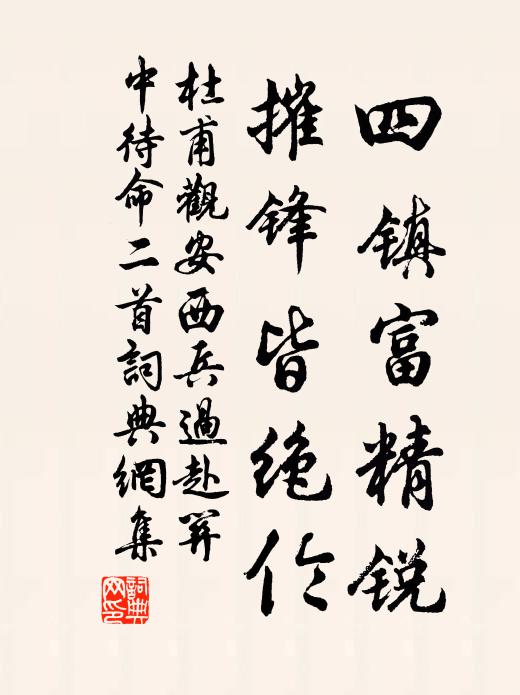 四镇富精锐
摧锋皆绝伦
杜甫觀安西兵過赴關
中待命二首詞典網集
詞典網印